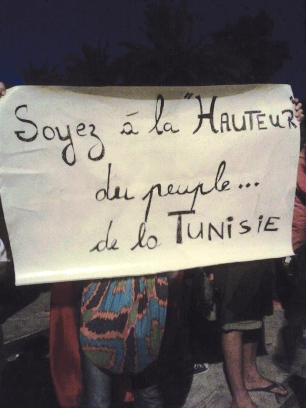 Soyez à la "HAUTEUR"
du peuple...
de la TUNISIE